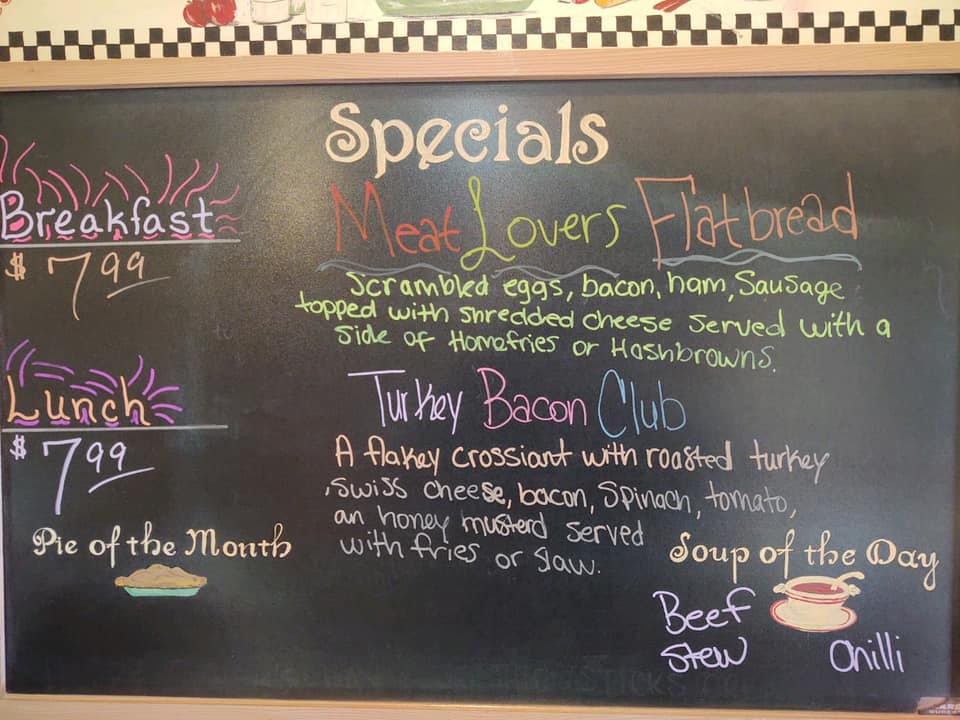 Specials
Breakfast
$7.99
Meat Lovers Flatbread
Scrambled eggs, bacon, ham, Sausage
topped with shredded cheese served with a
side of Homefries or Hashbrowns.
Lunch
$7.99
Turkey Bacon Club
A flakey crossiant with roasted turkey
, swiss cheese, bacon, spinach, tomato,
an honey musterd served
with fries or slaw.
Pie of the Month
Soup of the Day
Beef
Stew
Chilli